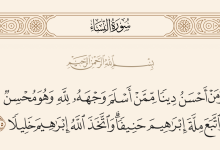 سُورَةُ النِّسَاءِ
بِسْمِ اللَّهِ الرَّحْمَٰنِ الرَّحِيمِ
مَنْ أَحْسَنُ دِينًا مِمَّنْ أَسْلَمَ وَجْهَهُ لِلَّهِ وَهُوَ مُحْسِنٌ
وَاتَّبَعَ مِلَّةَ إِبْرَاهِيمَ حَنِيفًا وَاتَّخَذَ اللَّهُ إِبْرَاهِيمَ خَلِيلًا